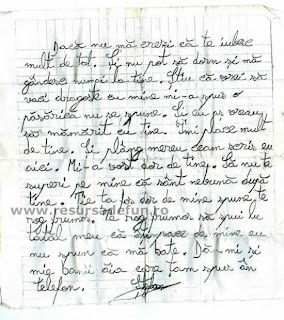 Dacă nu mă crezi că te iubesc
mult de tot. Și nu pot să dorm si mă
gândesc numai la tine. Știu că vrei să
vaci dragoste cu mine mi-a spus o
păsărică nu se spune. Și eu vreau
să mămărit cu tine. Îmi place mult
de tine. Și plâng mereu ceam scris eu
aici. Mi-a dor de tine. Să nu te
superi pe mine că sânt nebună după
tine. Ție ta fo dor de mine spune te
rog frumos. Te rog frumos să spui lu
tatăl meu că îți pace de mine eu
nu spun că mă bate. Dă-mi si
mie banii ăia care țam spus ân
telefon.
www.resursadefun.ro